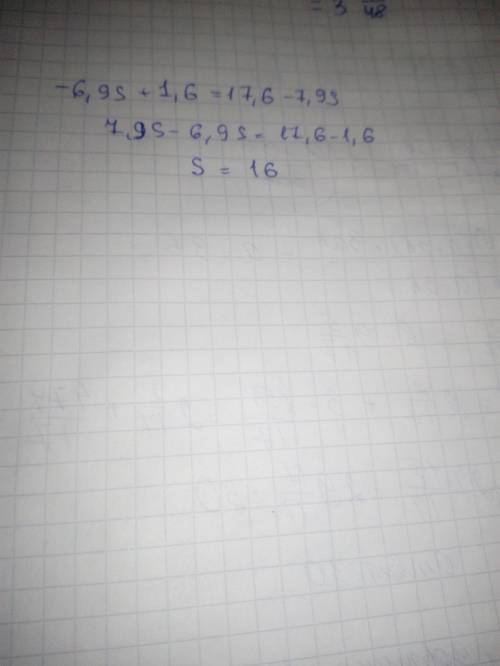 = 3 48
-6,9s + 1,6 = 17,6 - 7,9s
7,9s - 6,9s = 17,6 - 1,6
s = 16